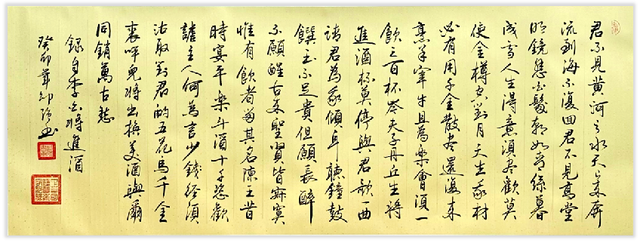 君不見黃河之水天上來奔
流到海不復回君不見高堂
明鏡悲白髮朝如青絲暮
成雪人生得意須盡歡莫
使金樽空對月天生我材
必有用千金散盡還復來
烹羊宰牛且為樂會須一
飲三百杯岑夫子丹丘生將
進酒杯莫停與君歌一曲
請君為我傾耳聽鐘鼓
饌玉不足貴但願長醉
不願醒古來聖賢皆寂寞
惟有飲者留其名陳王昔
時宴平樂斗酒十千恣歡
謔主人何為言少錢徑須
沽取對君酌五花馬千金
裘呼兒將出換美酒與爾
同銷萬古愁
錄李太白將進酒
癸卯